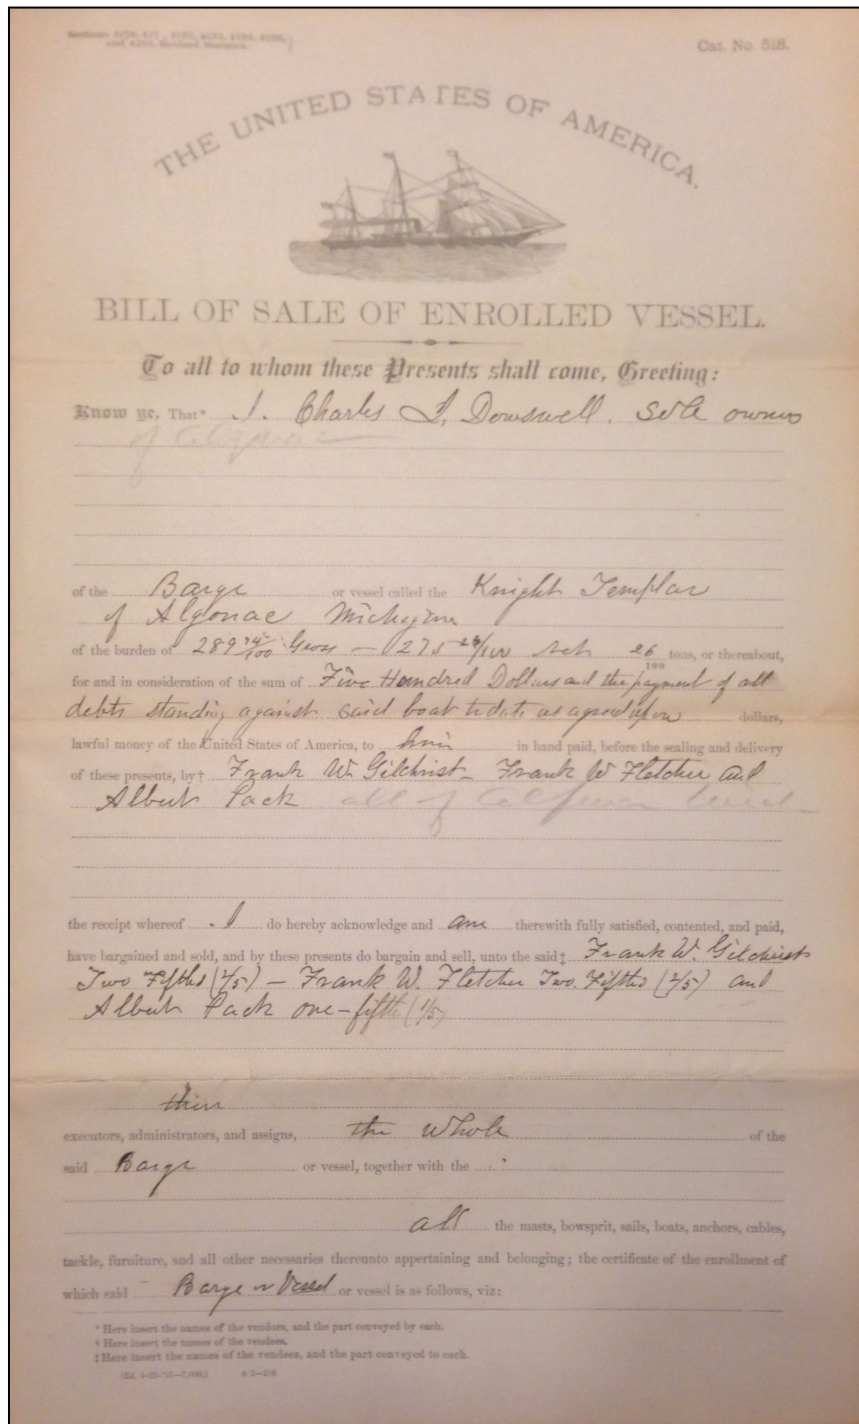 Sections 4170, 417 , 4192, 4193, 4194, 4196,
and 4312, Revised Statutes.
Cat. No. 518.
THE UNITED STATES OF AMERICA.
BILL OF SALE OF ENROLLED VESSEL.
To all to whom these Presents shall come, Greeting:
Know ye, That* I. Charles L. Dowswell. Sole owner
of Algonac
of the Barge or vessel called the Knight Templar
of Algonac Michigan
of the burden of 289 74/100 Gross — 275 26/100 Net 26/100 tons, or thereabout,
for and in consideration of the sum of Five Hundred Dollars and the payment of all
debts standing against said boat to date as agreed upon dollars,
lawful money of the United States of America, to him in hand paid, before the sealing and delivery
of these presents, by† Frank W. Gilchrist — Frank W Fletcher and
Albert Pack all of Alpena Mich
the receipt whereof I do hereby acknowledge and am therewith fully satisfied, contented, and paid,
have bargained and sold, and by these presents do bargain and sell, unto the said‡ Frank W. Gilchrist
Two Fifths (2/5) — Frank W. Fletcher Two Fifths (2/5) and
Albert Pack one-fifth (1/5)
their
executors, administrators, and assigns, the Whole of the
said Barge or vessel, together with the
all the masts, bowsprit, sails, boats, anchors, cables,
tackle, furniture, and all other necessaries thereunto appertaining and belonging; the certificate of the enrollment of
which said Barge or Vessel or vessel is as follows, viz:
* Here insert the names of the vendors, and the part conveyed by each.
† Here insert the names of the vendees.
‡ Here insert the names of the vendees, and the part conveyed to each.